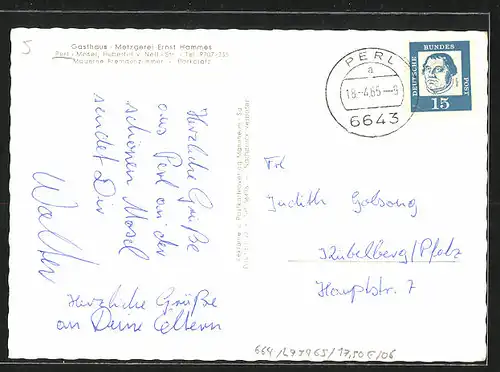 5
Gasthaus - Metzgerei Ernst Hammes
Perl - Mosel, Hubertus v. Nell - Str. - Tel. 9707-355
Moderne Fremdenzimmer - Parkplatz
Herzliche Grüße
aus Perl an der
schönen Mosel
sendet Dir
Walter
Herzliche Grüße
an Deine Eltern
PERL
a
18.-4.65--9
6643
DEUTSCHE BUNDES POST
15
Frl
Judith
Kübelberg/Pfalz
Hauptstr. 7